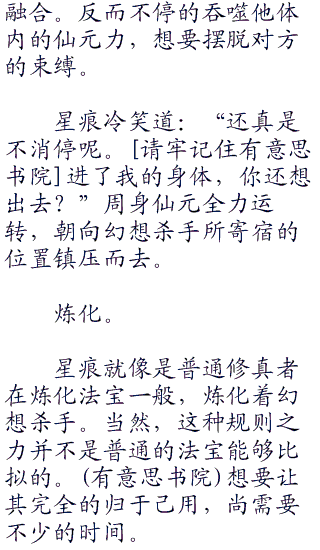 融合。反而不停的吞噬他体
内的仙元力，想要摆脱对方
的束缚。
星痕冷笑道：“还真是
不消停呢。[请牢记住有意思
书院]进了我的身体，你还想
出去？”周身仙元全力运
转，朝向幻想杀手所寄宿的
位置镇压而去。
炼化。
星痕就像是普通修真者
在炼化法宝一般，炼化着幻
想杀手。当然，这种规则之
力并不是普通的法宝能够比
拟的。(有意思书院)想要让
其完全的归于己用，尚需要
不少的时间。